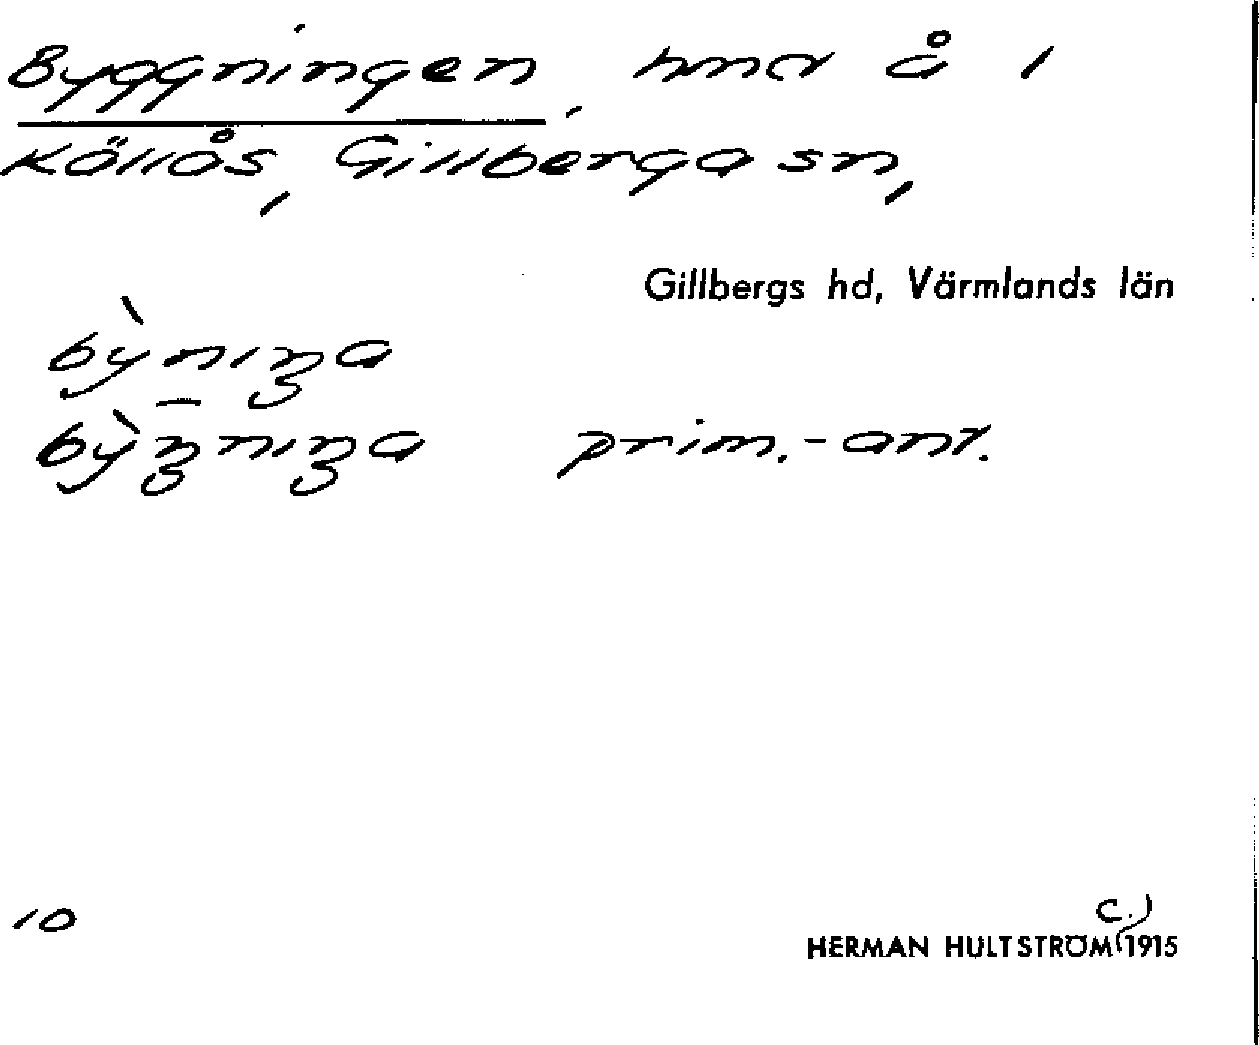 Byggningen, hmd å 1
Köllås, Gillberga sn,
Gillbergs hd, Värmlands län
bỳnıŋa
bỳŋnıŋa prim.-ant.
10
c.)
HERMAN HULTSTRÖM 1915